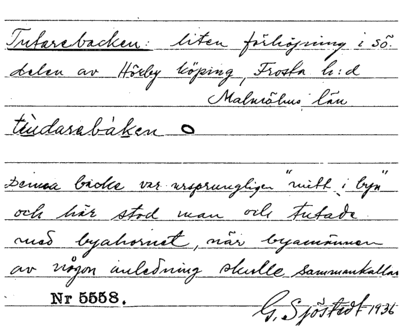 Tutarebacken: liten förhöjning i sö.
delen av Hörby köping, Frosta h:d
Malmöhus län
tudarabáken o
Denna backe var ursprungligen "mitt i byn"
och här stod man och tutade
med byahornet, när byamännen
av någon anledning skulle sammankallas
Nr 5558.
G. Sjöstedt 1936